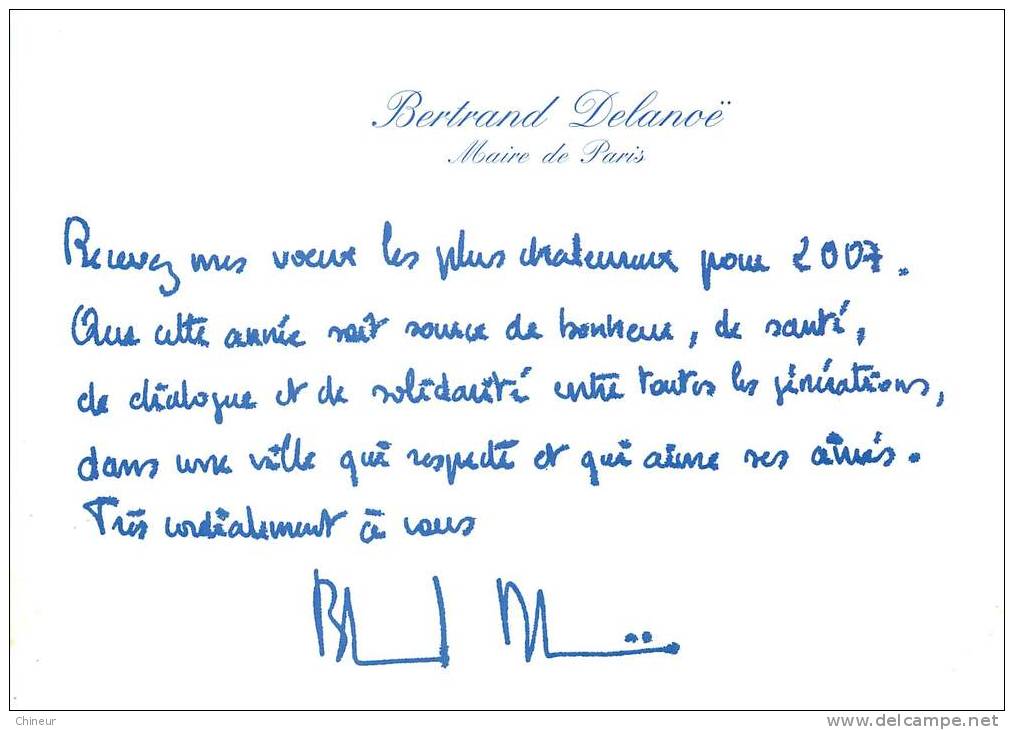 Bertrand Delanoë
Maire de Paris
Recevez mes voeux les plus chaleureux pour 2007.
Que cette année soit source de bonheur, de santé,
de dialogue et de solidarité entre toutes les générations,
dans une ville qui respecte et qui aime ses aînés.
Très cordialement à vous
Chineur
www.delcampe.net